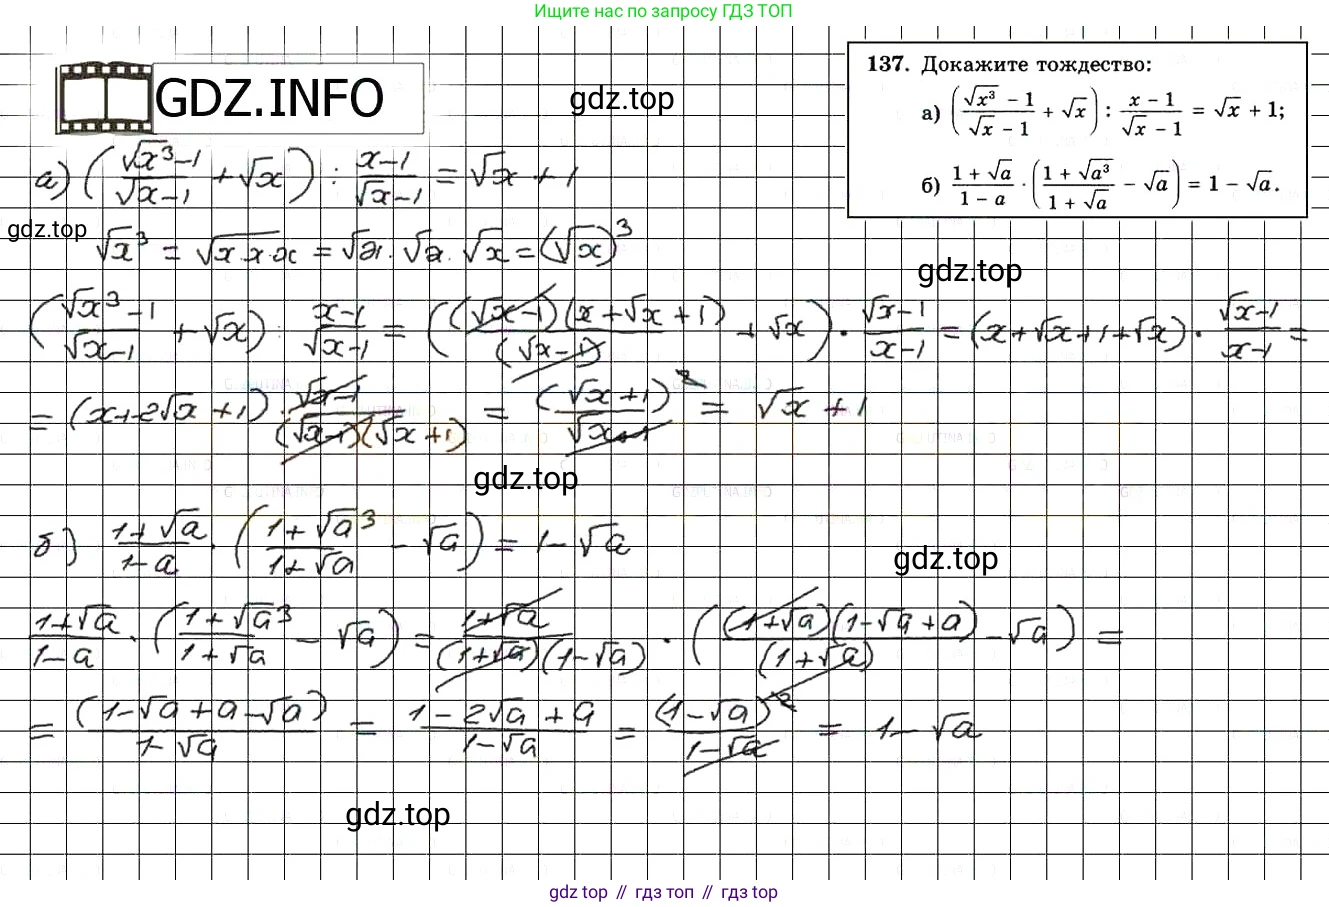 Ищите нас по запросу ГДЗ ТОП
GDZ.INFO
gdz.top
137. Докажите тождество:
а) ((√x³ − 1)/(√x − 1) + √x) : (x − 1)/(√x − 1) = √x + 1;
б) (1 + √a)/(1 − a) · ((1 + √a³)/(1 + √a) − √a) = 1 − √a.
а) ((√x³−1)/(√x−1) + √x) : (x−1)/(√x−1) = √x + 1
gdz.top
√x³ = √x·x·x = √x · √x · √x = (√x)³
gdz.top
((√x³−1)/(√x−1) + √x) : (x−1)/(√x−1) = (((√x−1)(x+√x+1))/(√x−1) + √x) · (√x−1)/(x−1) = (x+√x+1+√x) · (√x−1)/(x−1) =
= (x+2√x+1) · (√x−1)/((√x−1)(√x+1)) = (√x+1)²/(√x+1) = √x + 1
gdz.top
б) (1+√a)/(1−a) · ((1+√a³)/(1+√a) − √a) = 1−√a
gdz.top
(1+√a)/(1−a) · ((1+√a³)/(1+√a) − √a) = (1+√a)/((1+√a)(1−√a)) · (((1+√a)(1−√a+a))/(1+√a) − √a) =
= (1−√a+a−√a)/(1−√a) = (1−2√a+a)/(1−√a) = (1−√a)²/(1−√a) = 1−√a
gdz.top
gdz top // гдз топ // гдз top